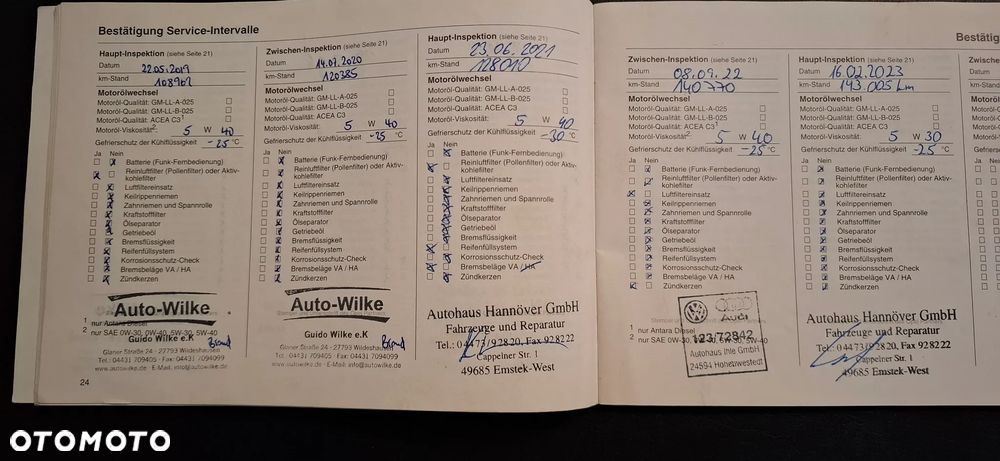 Bestätigung Service-Intervalle
Haupt-Inspektion (siehe Seite 21)
Datum 22.05.2019
km-Stand 108901
Motorölwechsel
Motoröl-Qualität: GM-LL-A-025
Motoröl-Qualität: GM-LL-B-025
Motoröl-Qualität: ACEA C3¹
Motoröl-Viskosität²: 5 W 40
Gefrierschutz der Kühlflüssigkeit -25 °C
Ja Nein
Batterie (Funk-Fernbedienung)
Reinluftfilter (Pollenfilter) oder Aktiv-
kohlefilter
Luftfiltereinsatz
Keilrippenriemen
Zahnriemen und Spannrolle
Kraftstofffilter
Ölseparator
Getriebeöl
Bremsflüssigkeit
Reifenfüllsystem
Korrosionsschutz-Check
Bremsbeläge VA / HA
Zündkerzen
Auto-Wilke
1 nur Antara Diesel
2 nur SAE 0W-30, 0W-40, 5W-30, 5W-40
Guido Wilke e.K
Glaner Straße 24 - 27793 Wildeshausen
Tel.: 04431 709405 - Fax: 04431 7094099
www.autowilke.de - E-Mail: info@autowilke.de
24
Zwischen-Inspektion (siehe Seite 21)
Datum 14.07.2020
km-Stand 120385
Motorölwechsel
Motoröl-Qualität: GM-LL-A-025
Motoröl-Qualität: GM-LL-B-025
Motoröl-Qualität: ACEA C3
Motoröl-Viskosität: 5 W 40
Gefrierschutz der Kühlflüssigkeit -25 °C
Ja Nein
Batterie (Funk-Fernbedienung)
Reinluftfilter (Pollenfilter) oder Aktiv-
kohlefilter
Luftfiltereinsatz
Keilrippenriemen
Zahnriemen und Spannrolle
Kraftstofffilter
Ölseparator
Getriebeöl
Bremsflüssigkeit
Reifenfüllsystem
Korrosionsschutz-Check
Bremsbeläge VA / HA
Zündkerzen
Auto-Wilke
Guido Wilke e.K
Glaner Straße 24 - 27793 Wildeshausen
Tel.: 04431 709405 - Fax: 04431 7094099
www.autowilke.de - E-Mail: info@autowilke.de
Haupt-Inspektion (siehe Seite 21)
Datum 23.06.2021
km-Stand 128010
Motorölwechsel
Motoröl-Qualität: GM-LL-A-025
Motoröl-Qualität: GM-LL-B-025
Motoröl-Qualität: ACEA C3
Motoröl-Viskosität: 5 W 40
Gefrierschutz der Kühlflüssigkeit -30 °C
Ja Nein
Batterie (Funk-Fernbedienung)
Reinluftfilter (Pollenfilter) oder Aktiv-
kohlefilter
Luftfiltereinsatz
Keilrippenriemen
Zahnriemen und Spannrolle
Kraftstofffilter
Ölseparator
Getriebeöl
Bremsflüssigkeit
Reifenfüllsystem
Korrosionsschutz-Check
Bremsbeläge VA / HA
Zündkerzen
Autohaus Hannöver GmbH
Fahrzeuge und Reparatur
Tel.: 04473/92820, Fax 928222
Cappelner Str. 1
49685 Emstek-West
Zwischen-Inspektion (siehe Seite 21)
Datum 08.09.22
km-Stand 140770
Motorölwechsel
Motoröl-Qualität: GM-LL-A-025
Motoröl-Qualität: GM-LL-B-025
Motoröl-Qualität: ACEA C3¹
Motoröl-Viskosität²: 5 W 40
Gefrierschutz der Kühlflüssigkeit -25 °C
Ja Nein
Batterie (Funk-Fernbedienung)
Reinluftfilter (Pollenfilter) oder Aktiv-
kohlefilter
Luftfiltereinsatz
Keilrippenriemen
Zahnriemen und Spannrolle
Kraftstofffilter
Ölseparator
Getriebeöl
Bremsflüssigkeit
Reifenfüllsystem
Korrosionsschutz-Check
Bremsbeläge VA / HA
Zündkerzen
Audi
1 nur Antara Diesel
123/72842
2 nur SAE 0W-30
Autohaus Ihle GmbH
24594 Hohenwestedt
Bestätig
Haupt-Inspektion (siehe Seite 21)
Datum 16.02.2023
km-Stand 143.005 km
Motorölwechsel
Motoröl-Qualität: GM-LL-A-025
Motoröl-Qualität: GM-LL-B-025
Motoröl-Qualität: ACEA C3
Motoröl-Viskosität: 5 W 30
Gefrierschutz der Kühlflüssigkeit -25 °C
Ja Nein
Batterie (Funk-Fernbedienung)
Reinluftfilter (Pollenfilter) oder Aktiv-
kohlefilter
Luftfiltereinsatz
Keilrippenriemen
Zahnriemen und Spannrolle
Kraftstofffilter
Ölseparator
Getriebeöl
Bremsflüssigkeit
Reifenfüllsystem
Korrosionsschutz-Check
Bremsbeläge VA / HA
Zündkerzen
Autohaus Hannöver GmbH
Fahrzeuge und Reparatur
Tel.: 04473/92820, Fax 928222
Cappelner Str. 1
49685 Emstek-West
OTOMOTO